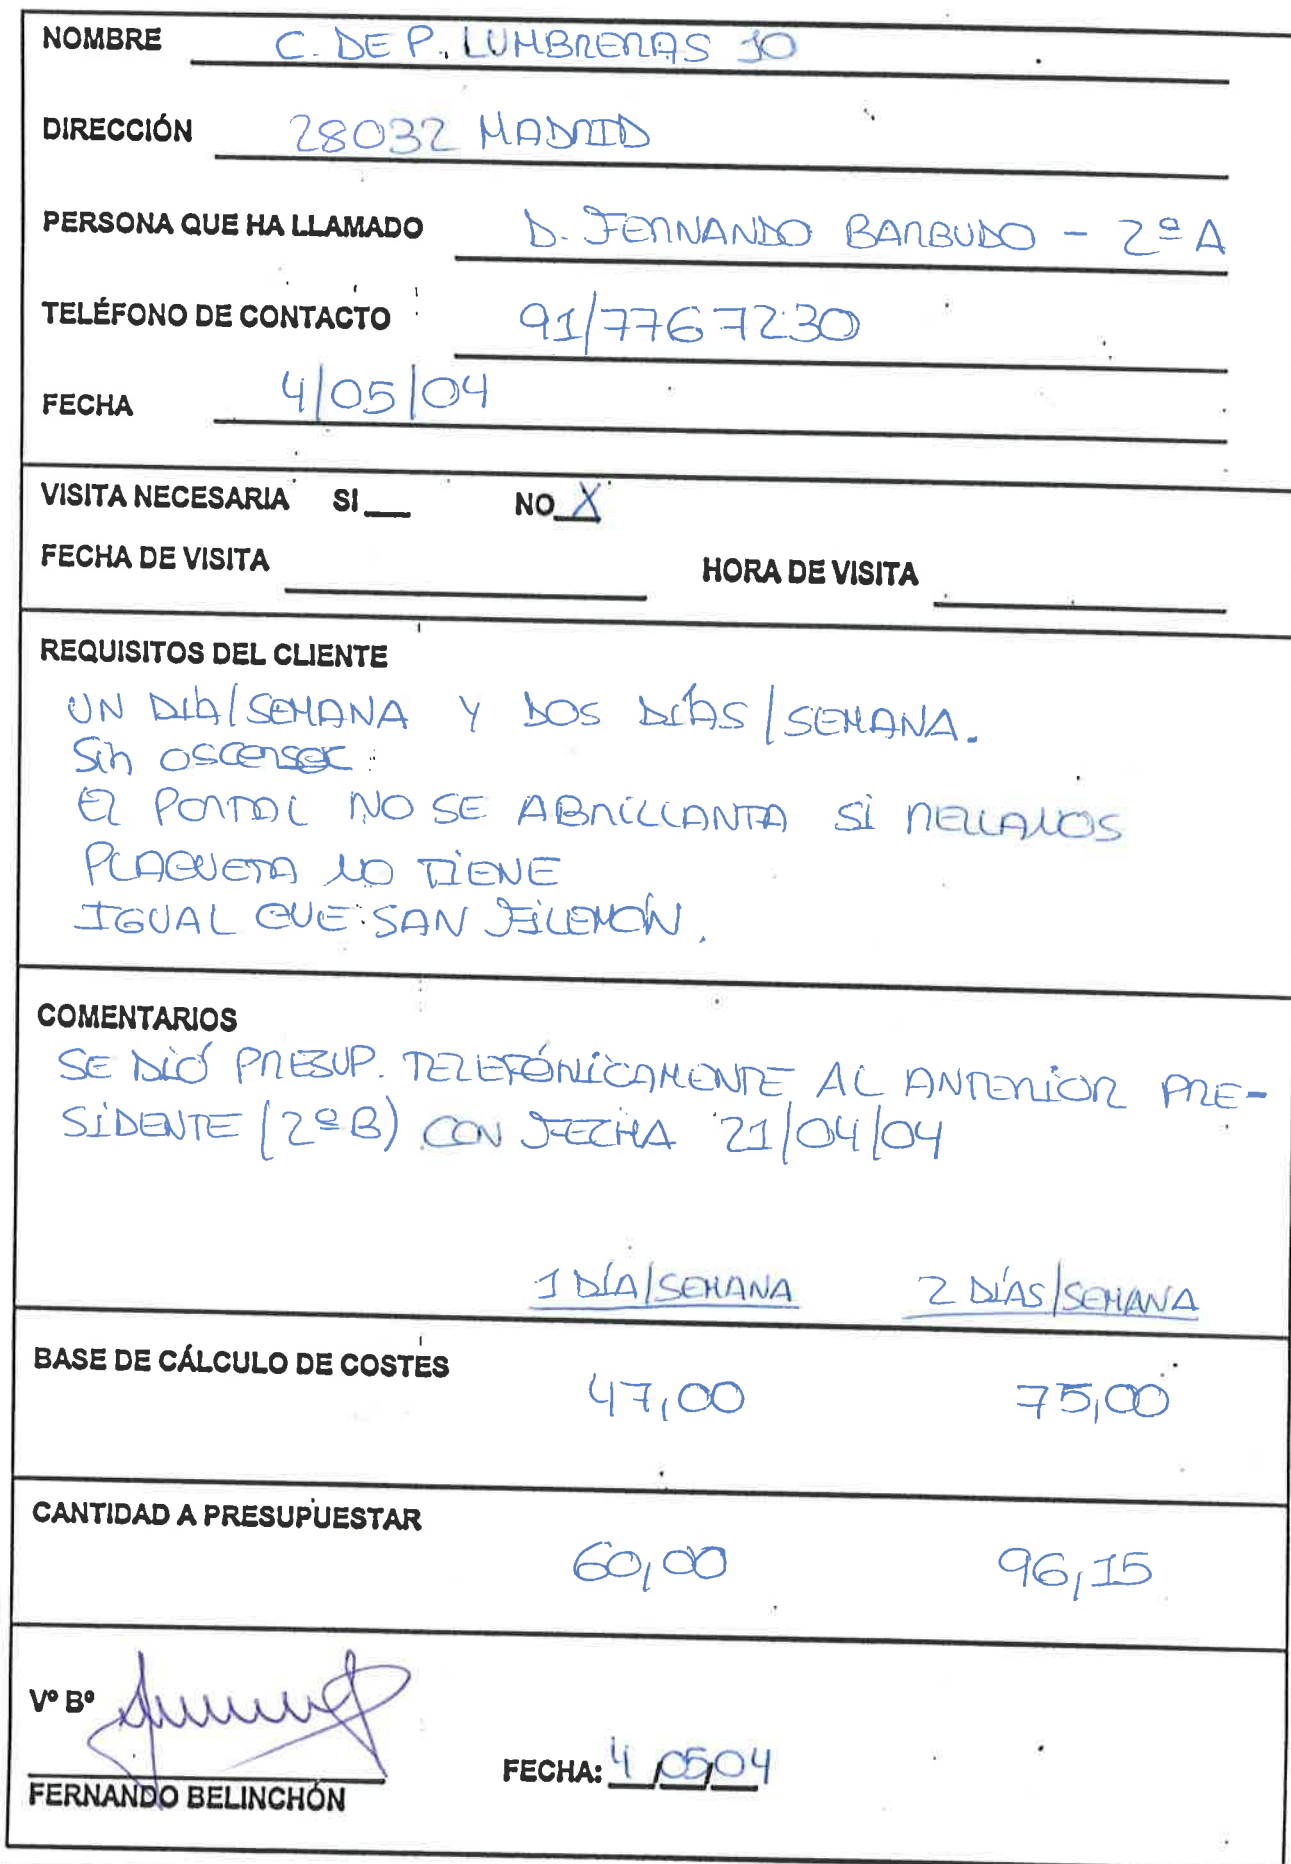 NOMBRE C. DE P. LUMBRERAS 10
DIRECCIÓN 28032 MADRID
PERSONA QUE HA LLAMADO D. FERNANDO BARBUDO - 2º A
TELÉFONO DE CONTACTO 91/7767230
FECHA 4/05/04
VISITA NECESARIA SI__ NO X
FECHA DE VISITA HORA DE VISITA
REQUISITOS DEL CLIENTE
UN DÍA/SEMANA Y DOS DÍAS/SEMANA.
Sin ascensor.
El PORTAL NO SE ABRILLANTA SI RELLANOS
PLAQUETA NO TIENE
IGUAL QUE SAN FILEMÓN.
COMENTARIOS
SE DIÓ PRESUP. TELEFÓNICAMENTE AL ANTERIOR PRE-
SIDENTE (2º B) CON FECHA 21/04/04
1 DÍA/SEMANA 2 DÍAS/SEMANA
BASE DE CÁLCULO DE COSTES 47,00 75,00
CANTIDAD A PRESUPUESTAR
60,00 96,15
Vº Bº
FECHA: 4/05/04
FERNANDO BELINCHÓN